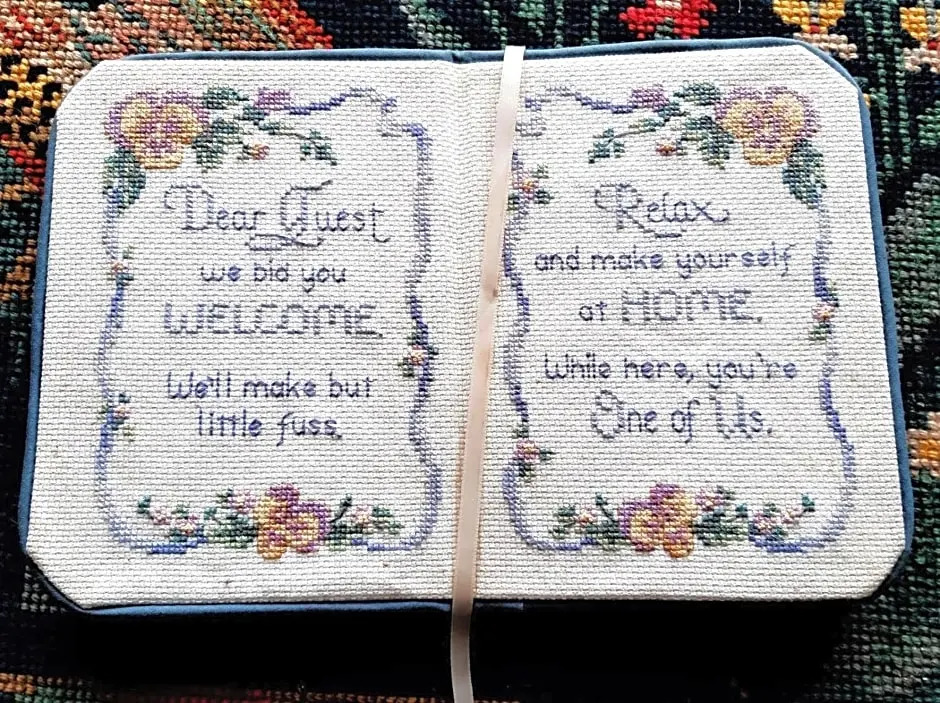 Dear Guest
we bid you
WELCOME.
We'll make but
little fuss.
Relax
and make yourself
at HOME.
While here, you're
One of Us.